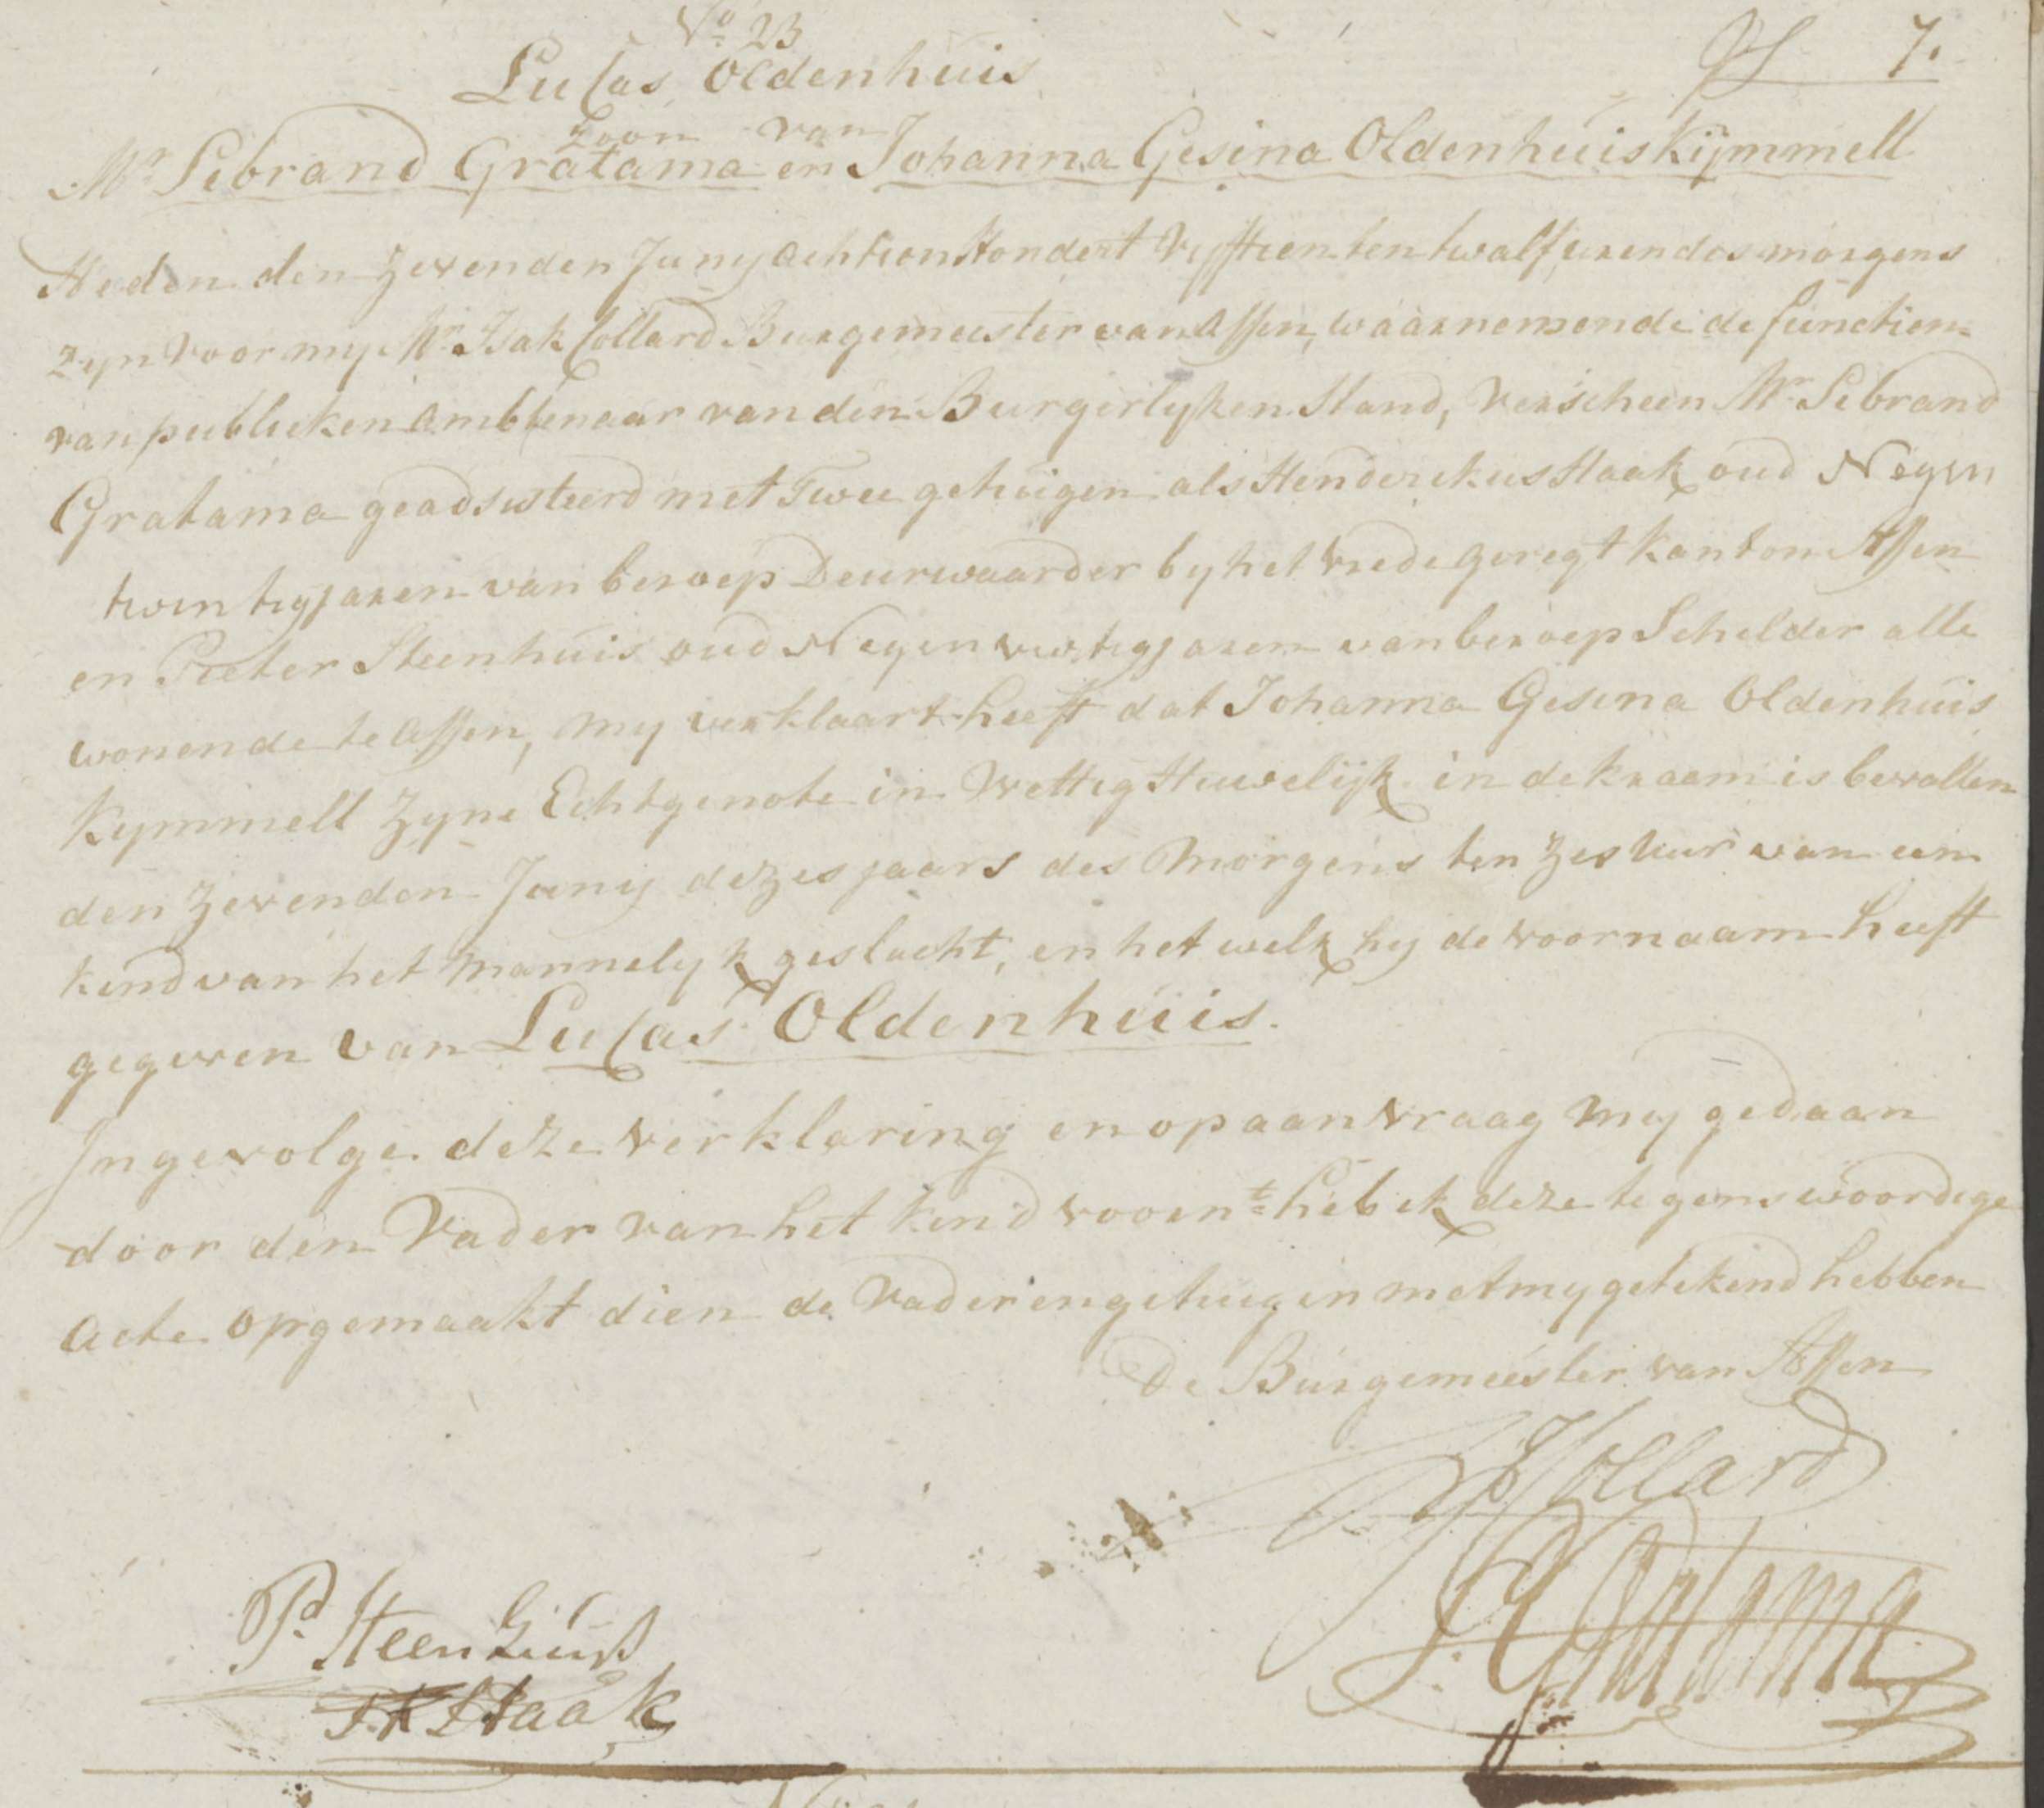 No 23
7.
Lucas Oldenhuis
Zoon van
Mr Sebrand Gratama en Johanna Gesina Oldenhuis Kijmmell
Heden den zevenden Juny achtien Hondert Vyftien ten twalf uren des morgens
zyn voor my Mr. Isak Collard Burgemeister van Assen, waarnemende de functien
van publieken Ambtenaar van den Burgerlyken Stand, verscheen Mr Sebrand
Gratama geadsisteerd met Twee getuigen als Henderikus Haak oud Negen
twintig jaren van beroep Deurwaarder by het vrede geregt kanton Assen
en Pieter Steenhuis oud Negen veertig jaren van beroep Schelder alle
wonende te Assen, my verklaart heeft dat Johanna Gesina Oldenhuis
Kymmell Zyne Echtgenote in Wettig Huwelijk in de kraam is bevallen
den Zevenden Juny dezes jaars des Morgens ten zes uur van een
kind van het Mannelyk geslacht, en het welk hy de voornaam heeft
gegeven van Lucas Oldenhuis.
In gevolge deze verklaring en op aanvraag my gedaan
door den Vader van het kind voorn.t heb ik deze tegenswoordige
Acte opgemaakt dien de Vader en getuigen met my getekend hebben
De Burgemeester van Assen
Collard
S. Gratama
P. Steenhuis
Haak